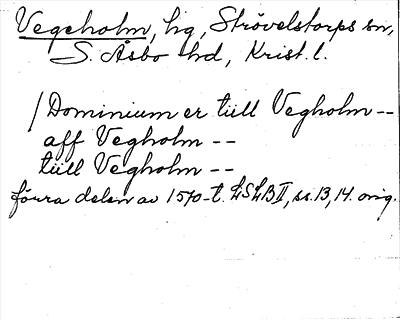 Vegeholm, hg, Strövelstorps sn,
S. Åsbo hd, Krist. l.
/Dominium er tiill Vegholm --
aff Vegholm --
tiill Vegholm --
förra delen av 1570-t. LSLB II, ss. 13, 14. orig.